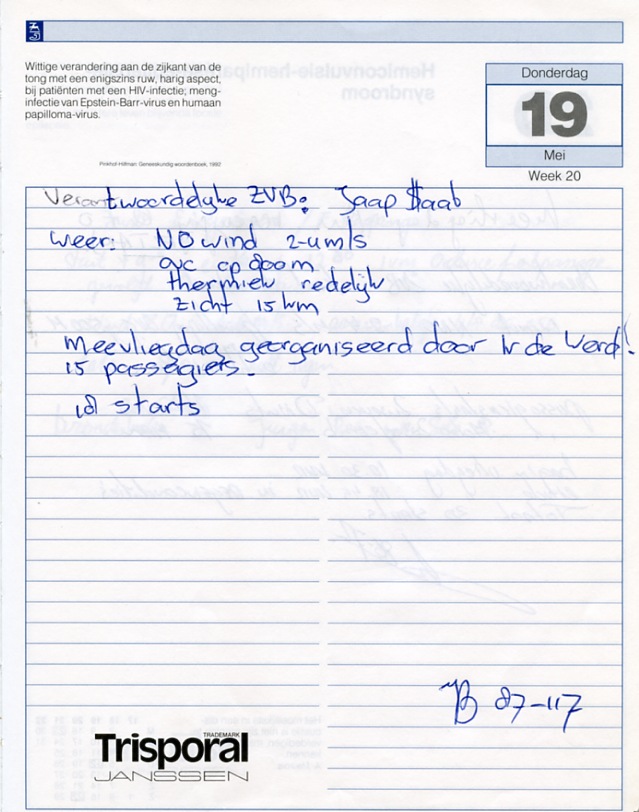 Wittige verandering aan de zijkant van de
tong met een enigszins ruw, harig aspect,
bij patiënten met een HIV-infectie; meng-
infectie van Epstein-Barr-virus en humaan
papilloma-virus.
Pinkhof-Hilfman: Geneeskundig woordenboek, 1992
Donderdag
19
Mei
Week 20
Verantwoordelijke ZVB: Jaap Staab
weer: NO wind 2-4 m/s
ovc op doom
thermiek redelijk
zicht 15 km
Meevliegdag georganiseerd door Ir de Werd!
15 passagiers.
18 starts
87-117
TRADEMARK
Trisporal
JANSSEN